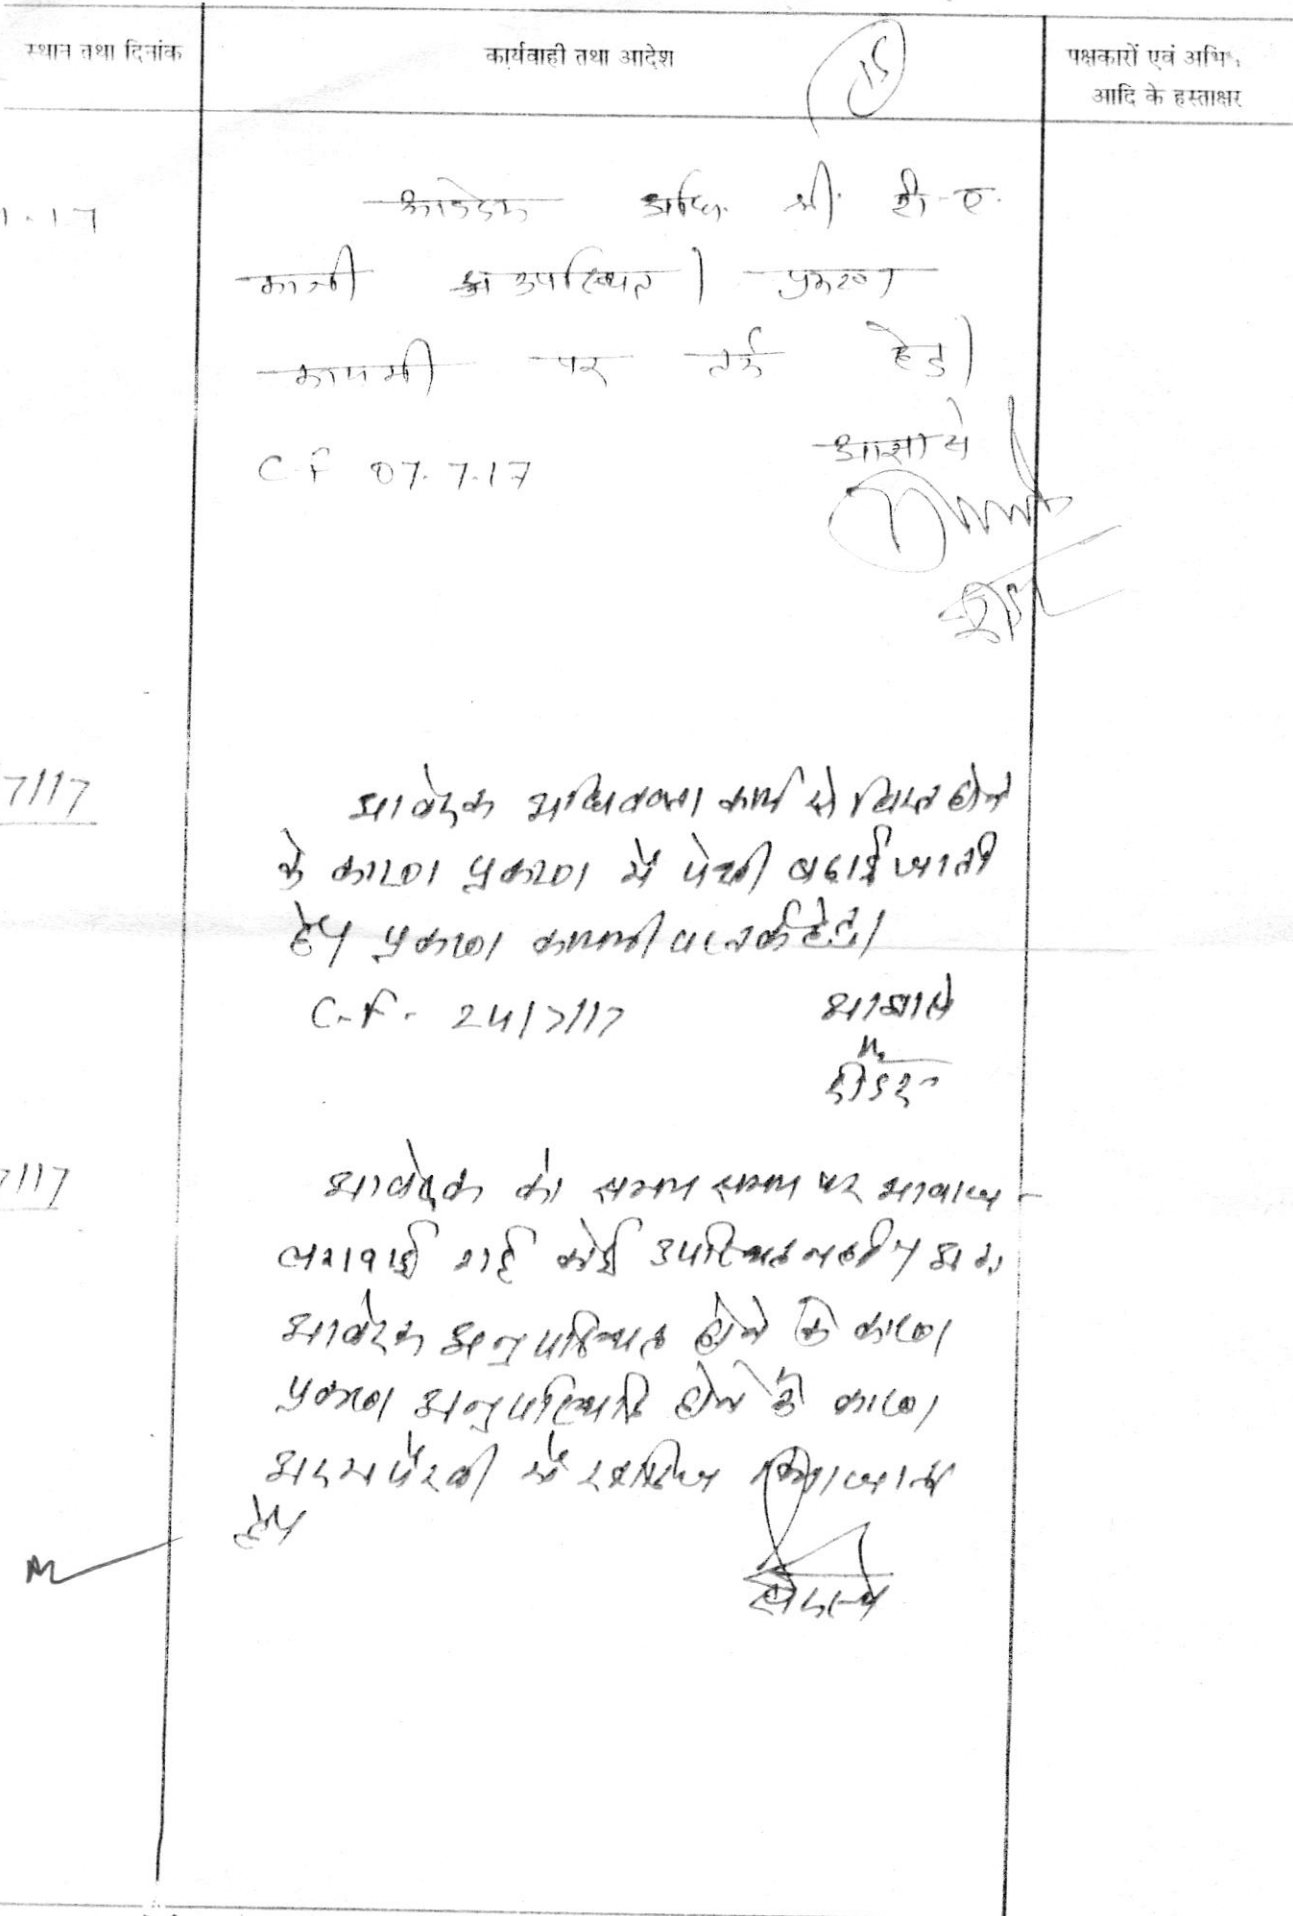 स्थान तथा दिनांक
कार्यवाही तथा आदेश
15
पक्षकारों एवं अभि.
आदि के हस्ताक्षर
1.17
आवेदक अभि. श्री टी.ए.
काजी उपस्थित। प्रकरण
कायमी पर तर्क हेतु।
C.F 07.7.17
आज्ञा से
7/17
आवेदक अधिवक्ता कार्य से विरत होने
के कारण प्रकरण में पेशी बढाई जाती
है। प्रकरण कायमी पर तर्क हेतु।
C.F. 24/7/17
आज्ञा से
रीडर
7/17
आवेदक को समय समय पर आवाज
लगवाई गई कोई उपस्थित नही। अतः
आवेदक अनुपस्थित होने के कारण
प्रकरण अनुपस्थिति होने के कारण
अदम पैरवी में खारिज किया जाता
है।
सदस्य